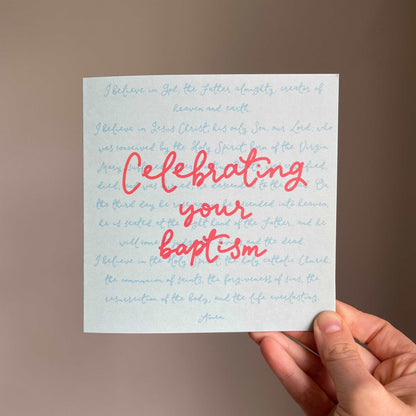 I believe in God, the Father almighty, creator of
heaven and earth.
I believe in Jesus Christ, his only Son, our Lord, who
was conceived by the Holy Spirit, born of the Virgin
Celebrating
died, and was
the third day he ascended into heaven,
your
he is seated at the right hand of the Father, and he
will come and the dead.
baptism
I believe in the Holy Spirit, the holy catholic Church,
the communion of saints, the forgiveness of sins, the
resurrection of the body, and the life everlasting.
Amen